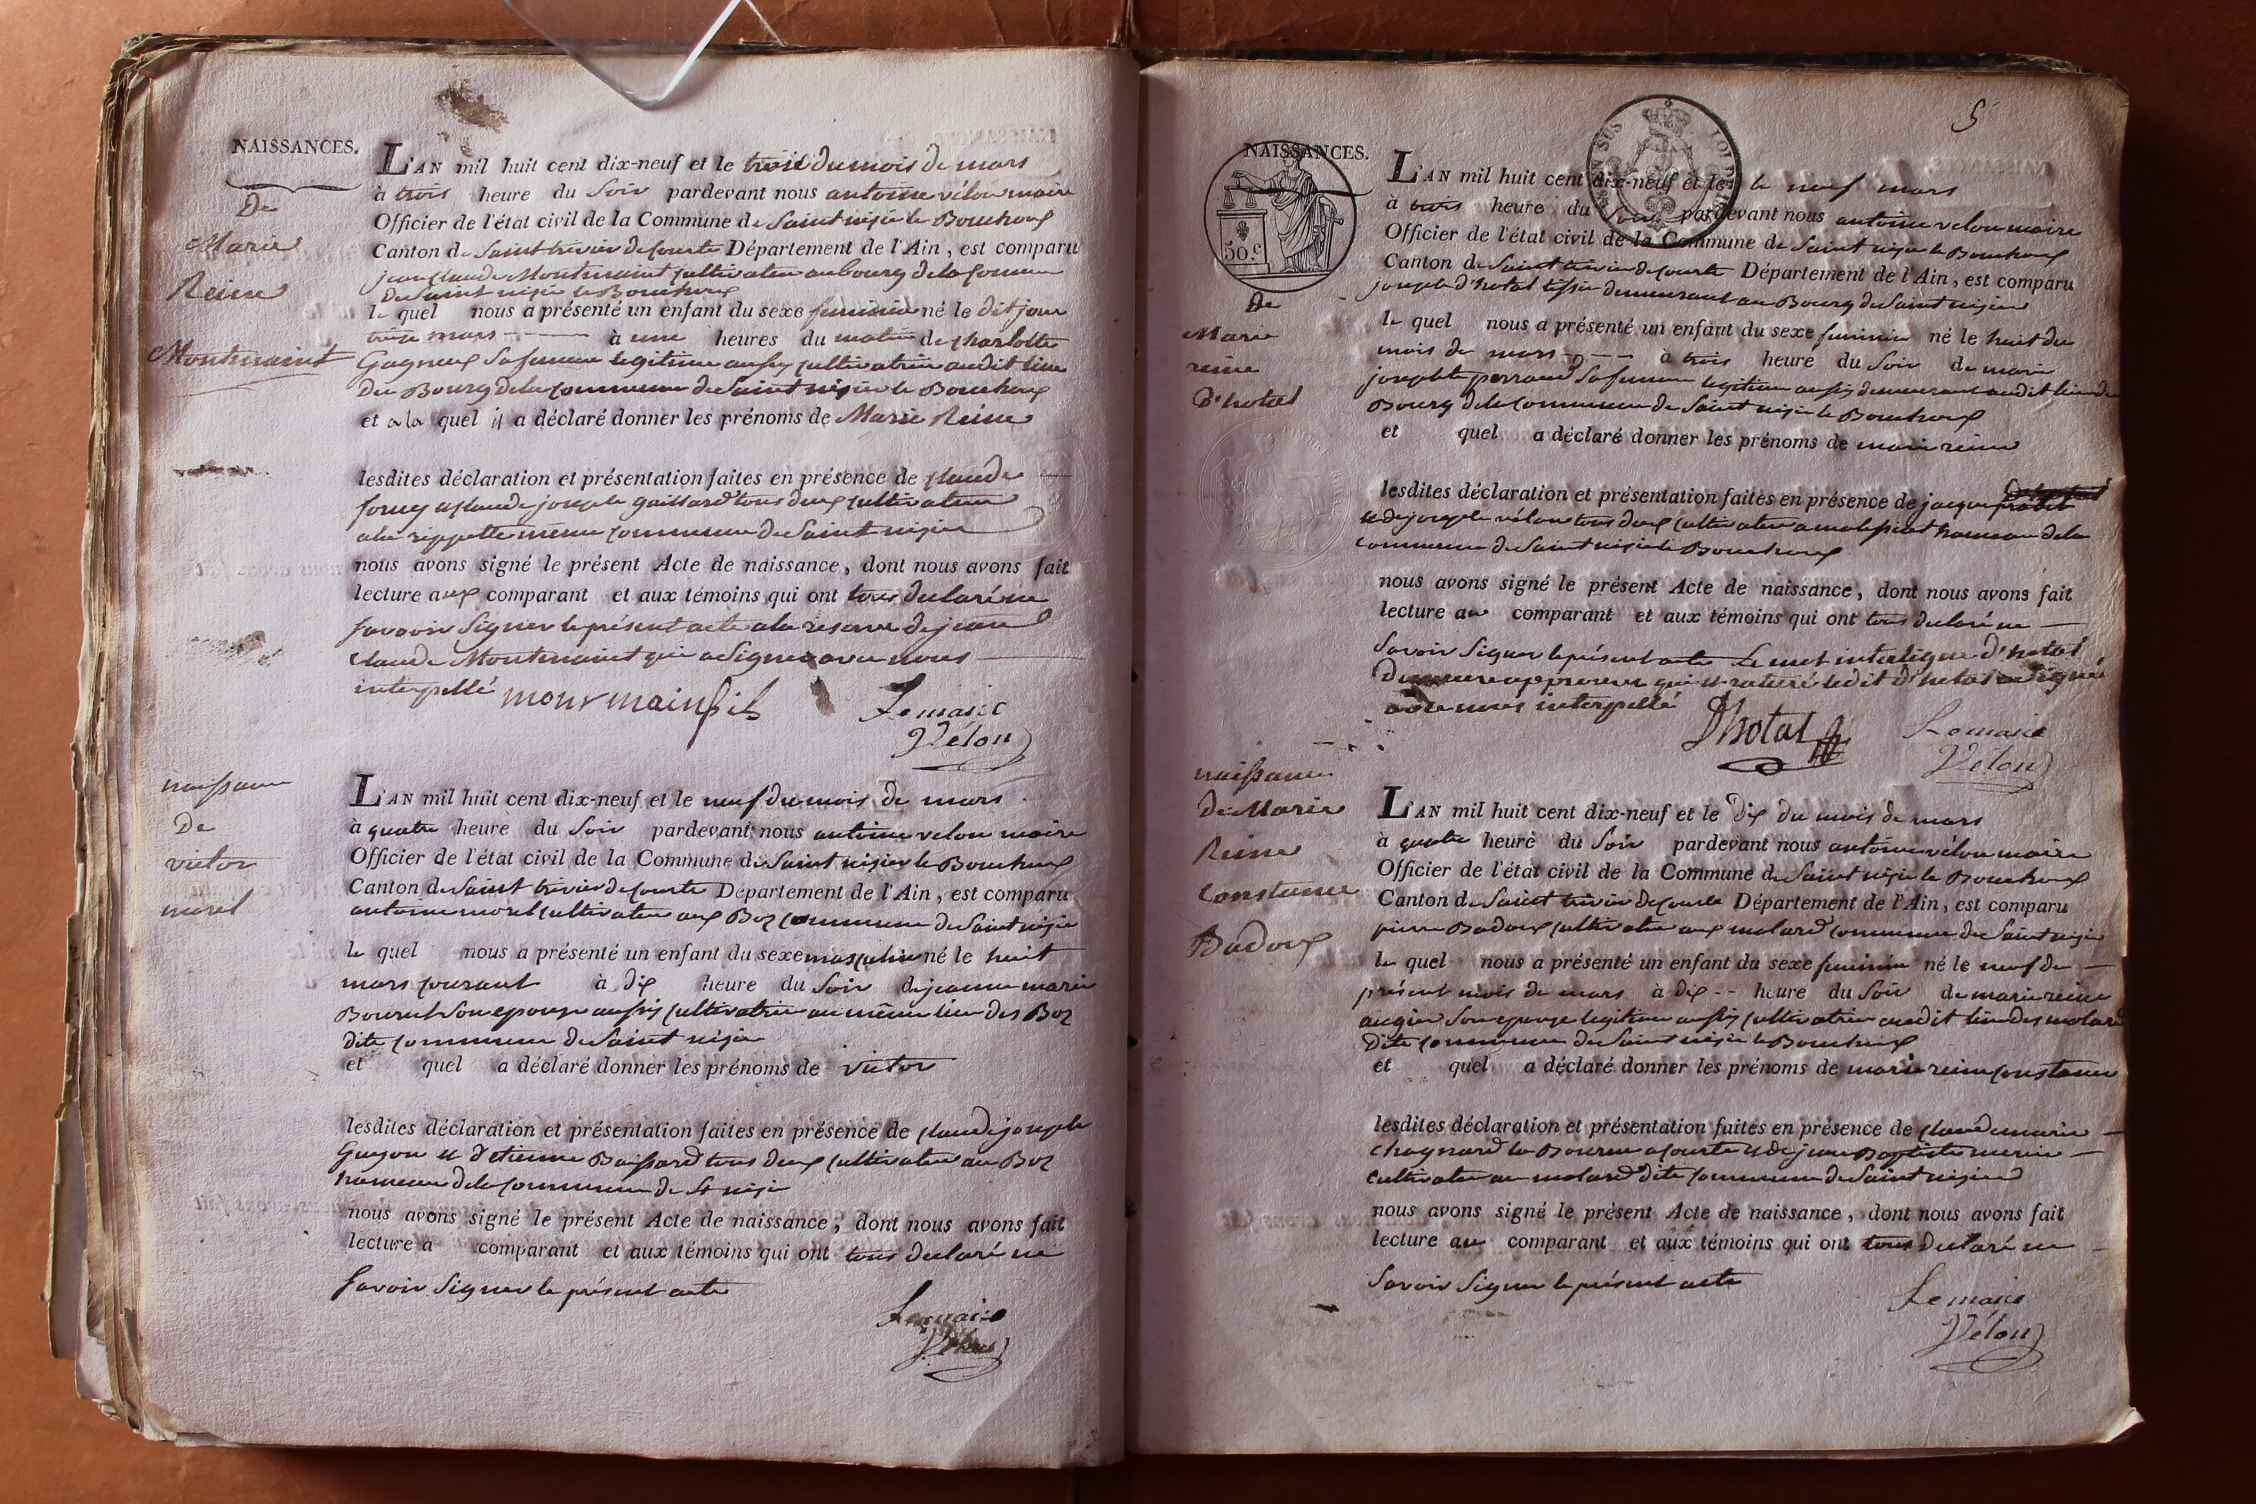 NAISSANCES.
De
Marie
Reine
Montmaint
L'AN mil huit cent dix-neuf et le trois du mois de mars
à trois heure du Soir pardevant nous antoine vélon maire
Officier de l'état civil de la Commune de Saint nizier le Bouchoux
Canton de Saint trivier de courte Département de l'Ain, est comparu
jean claude Montmaint cultivateur au bourg de la commune
de Saint nizier le Bouchoux
le quel nous a présenté un enfant du sexe feminin né le dit jour
mars à une heures du matin de charlotte
Gagneux Sa femme legitime aussy cultivatrice audit lieu
Du Bourg de la commune de Saint nizier le Bouchoux
et a la quel il a déclaré donner les prénoms de Marie Reine
lesdites déclaration et présentation faites en présence de claude
et claude joseph gaillard tous deux cultivateur
a la rippette même commune de Saint nizier
nous avons signé le présent Acte de naissance, dont nous avons fait
lecture aux comparant et aux témoins qui ont tous declaré ne
Savoir Signer le présent acte a la réserve de jean
claude Montmaint qui a Signer avec nous
interpellé monrmain fils Le maire
Vélon
naissance
De
victor
morel
L'AN mil huit cent dix-neuf et le neuf du mois de mars
à quatre heure du Soir pardevant nous antoine velon maire
Officier de l'état civil de la Commune de Saint nizier le Bouchoux
Canton de Saint trivier de courte Département de l'Ain, est comparu
antoine morel cultivateur aux Boz commune de Saint nizier
le quel nous a présenté un enfant du sexe masculin né le huit
mars courant à dix heure du Soir de jeanne marie
Bourut Son epouse aussy cultivatrice au même lieu des Boz
dite commune de Saint nizier
et quel a déclaré donner les prénoms de victor
lesdites déclaration et présentation faites en présence de claude joseph
Guyon et d'etienne Baissard tous deux cultivateur au Boz
hameau de la commune de St nizier
nous avons signé le présent Acte de naissance, dont nous avons fait
lecture a comparant et aux témoins qui ont tous declaré ne
Savoir Signer le présent acte
Le maire
Vélon
5
NAISSANCES.
50.c
De
Marie
reine
D'hotal
L'AN mil huit cent dix-neuf et le le neuf mars
à trois heure du Soir pardevant nous antoine velon maire
Officier de l'état civil de la Commune de Saint nizier le Bouchoux
Canton de Saint trivier de courte Département de l'Ain, est comparu
joseph d'hotal tissier demeurant au Bourg de Saint nizier
le quel nous a présenté un enfant du sexe feminin né le huit du
mois de mars à trois heure du Soir de marie
josephte perraud Sa femme legitime aussy demeurant audit lieu du
Bourg de la commune de Saint nizier le Bouchoux
et quel a déclaré donner les prénoms de marie reine
lesdites déclaration et présentation faites en présence de jacque
et de joseph vélon tous deux cultivateur a hameau de la
commune de Saint nizier le Bouchoux
nous avons signé le présent Acte de naissance, dont nous avons fait
lecture au comparant et aux témoins qui ont tous declaré ne
Savoir Signer le présent acte Le mot interligne d'hotal
qui est raturé ledit d'hotal a Signé
avec nous interpellé
Dhotal Le maire
Vélon
naissance
De Marie
Reine
Constance
Badoux
L'AN mil huit cent dix-neuf et le Dix du mois de mars
à quatre heure du Soir pardevant nous antoine vélon maire
Officier de l'état civil de la Commune de Saint nizier le Bouchoux
Canton de Saint trivier de courte Département de l'Ain, est comparu
pierre Badoux cultivateur aux molard commune de Saint nizier
le quel nous a présenté un enfant du sexe feminin né le neuf de
présent mois de mars à dix heure du Soir de marie reine
augier Son epouse legitime aussy cultivatrice audit lieu des molard
Dite commune de Saint nizier le Bouchoux
et quel a déclaré donner les prénoms de marie reine constance
lesdites déclaration et présentation faites en présence de claude marie
chagnard la Bourue a courte et de jean Baptiste
cultivateur au molard dite commune de Saint nizier
nous avons signé le présent Acte de naissance, dont nous avons fait
lecture au comparant et aux témoins qui ont tous declaré ne
Savoir Signer le présent acte
Le maire
Vélon